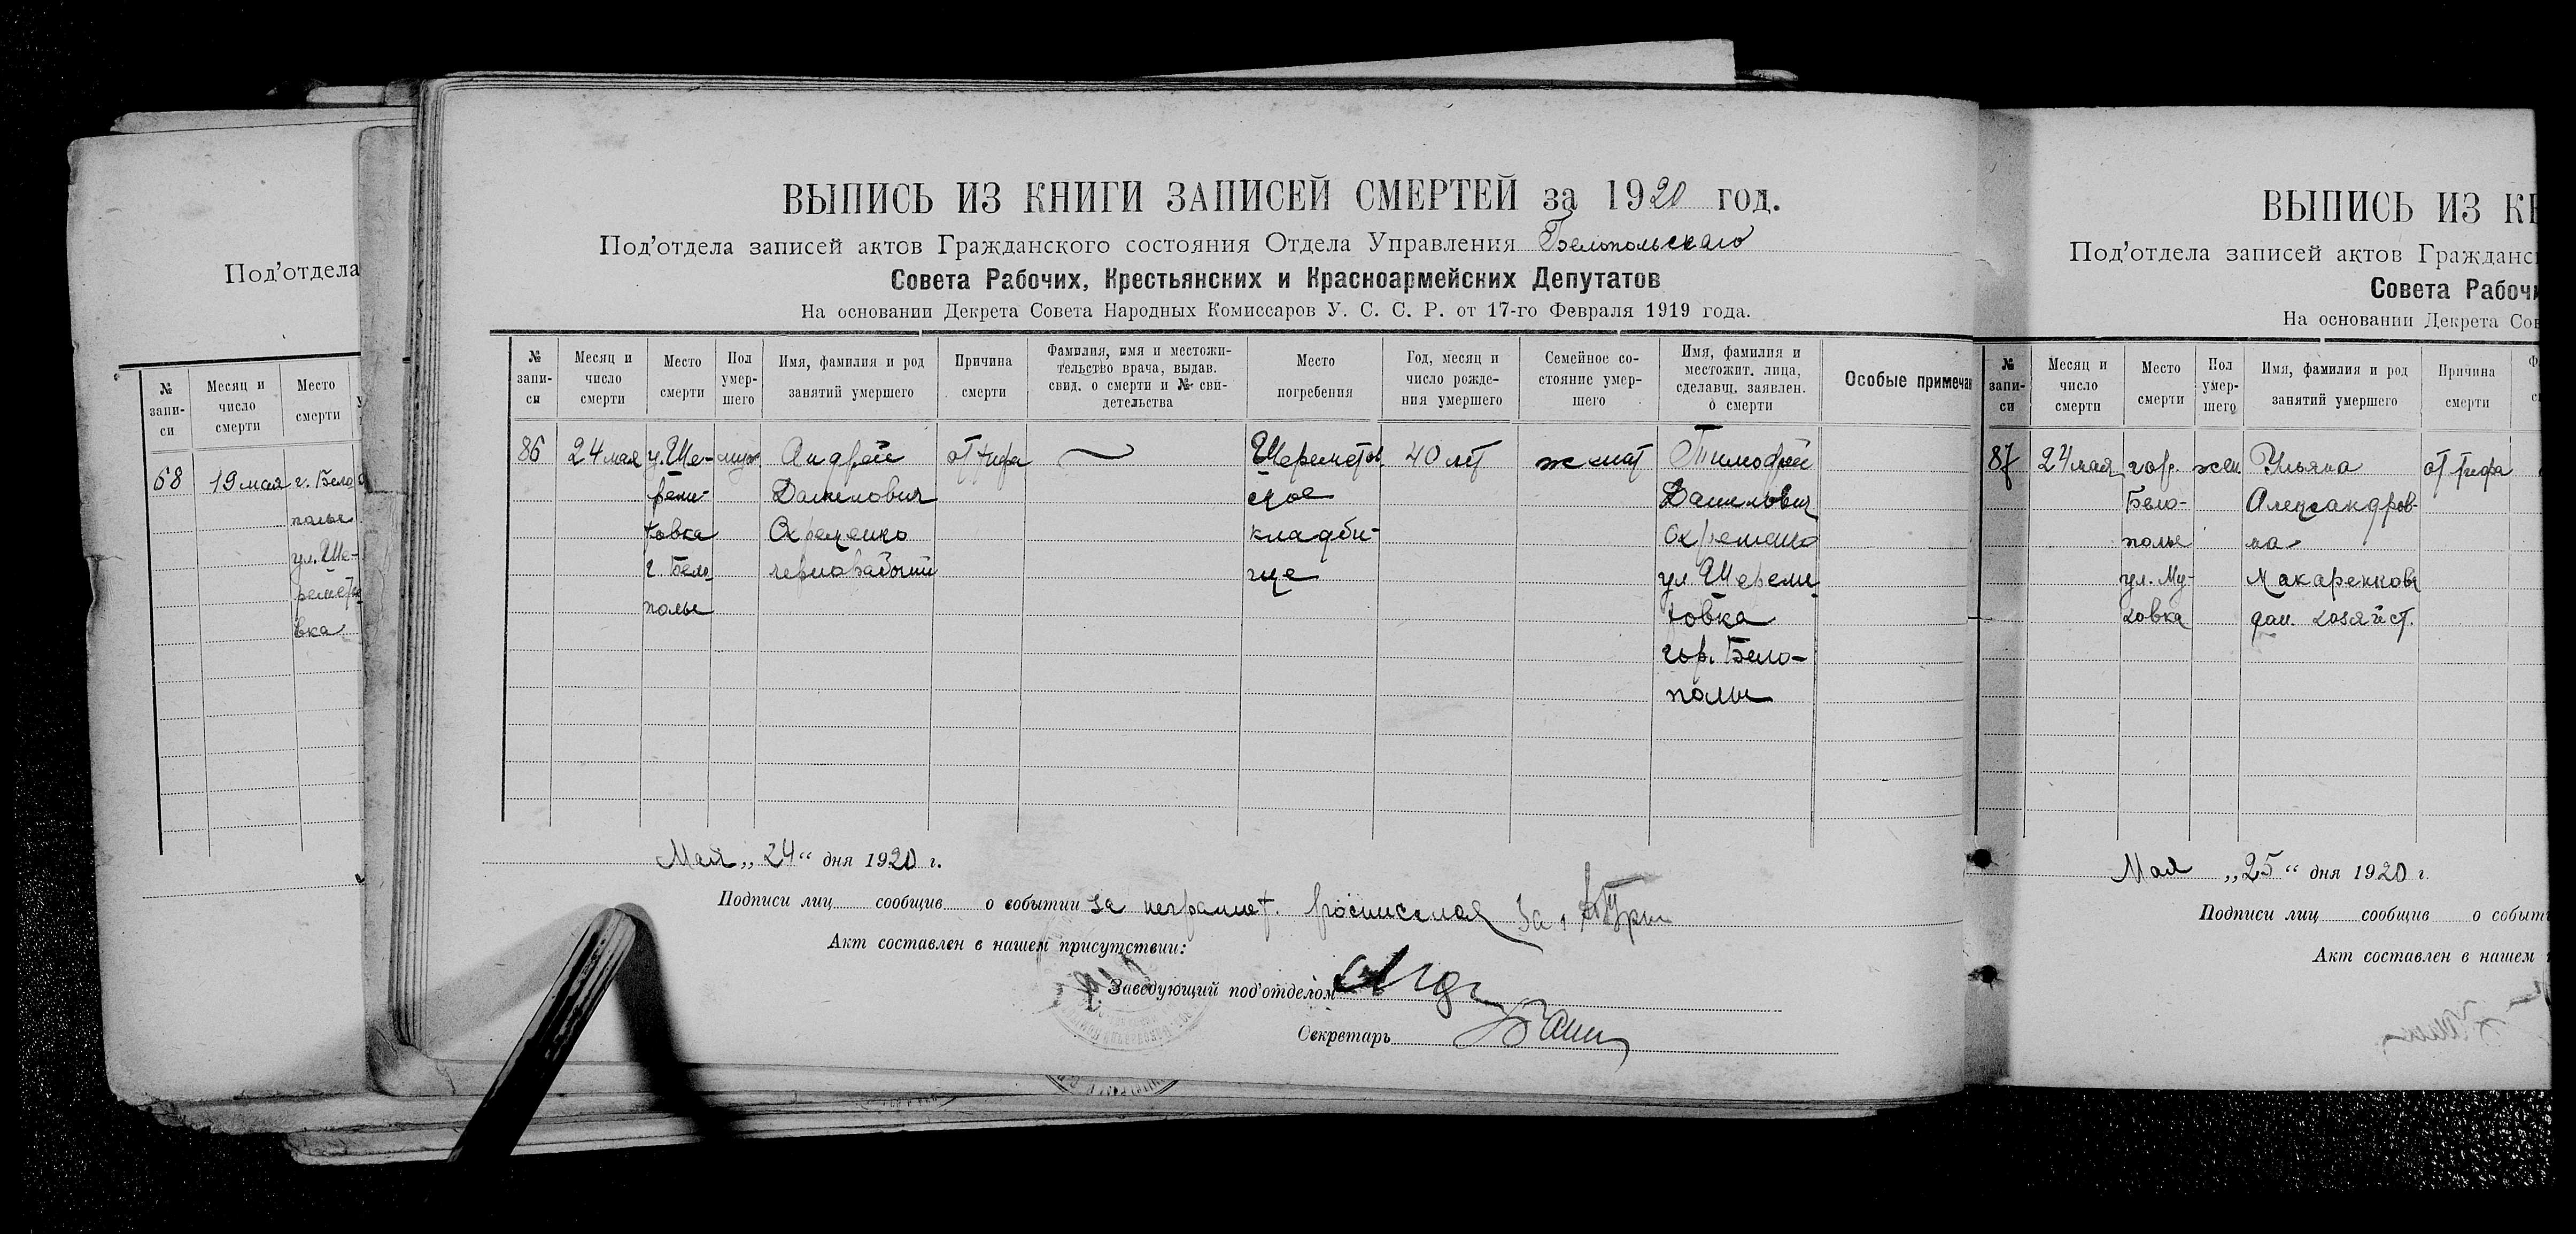 Под'отдела
№ запи- си
Месяц и число смерти
Место смерти
68
19 мая
г. Бело
полье
ул. Ше-
вка
ВЫПИСЬ ИЗ КНИГИ ЗАПИСЕЙ СМЕРТЕЙ за 1920 год.
Под'отдела записей актов Гражданского состояния Отдела Управления Белопольскаго
Совета Рабочих, Крестьянских и Красноармейских Депутатов
На основании Декрета Совета Народных Комиссаров У. С. С. Р. от 17-го Февраля 1919 года.
№ запи- си
Месяц и число смерти
Место смерти
Пол умер- шего
Имя, фамилия и род занятий умершего
Причина смерти
Фамилия, имя и местожи- тельство врача, выдав. свид. о смерти и № сви- детельства
Место погребения
Год, месяц и число рожде- ния умершего
Семейное со- стояние умер- шего
Имя, фамилия и местожит. лица, сделавш. заявлен. о смерти
Особые примечан
86
24 мая
у. Ше-
реме-
товка
г. Бело
полье
муж.
Андрей
Данилович
Охременко
чернорабочий
от тифа
Шереметов
ское
кладби-
ще
40 лет
женат
Тимофей
Данилович
Охременко
ул. Шереме
товка
гор. Бело-
полье
Мая „24“ дня 1920 г.
Подписи лиц сообщив о событии за неграмот. За
Акт составлен в нашем присутствии:
Заведующий под'отделом
Секретарь
ВЫПИСЬ ИЗ КН
Под'отдела записей актов Гражданс
Совета Рабочи
На основании Декрета Сов
№ запи- си
Месяц и число смерти
Место смерти
Пол умер- шего
Имя, фамилия и род занятий умершего
Причина смерти
87
24 мая
гор.
Бело-
полье
ул. Му-
ховка
жен
Ульяна
Александров-
на
Макаренкова
дом. хозяйст.
от тифа
Мая „25“ дня 1920 г.
Подписи лиц сообщив о событ
Акт составлен в нашем